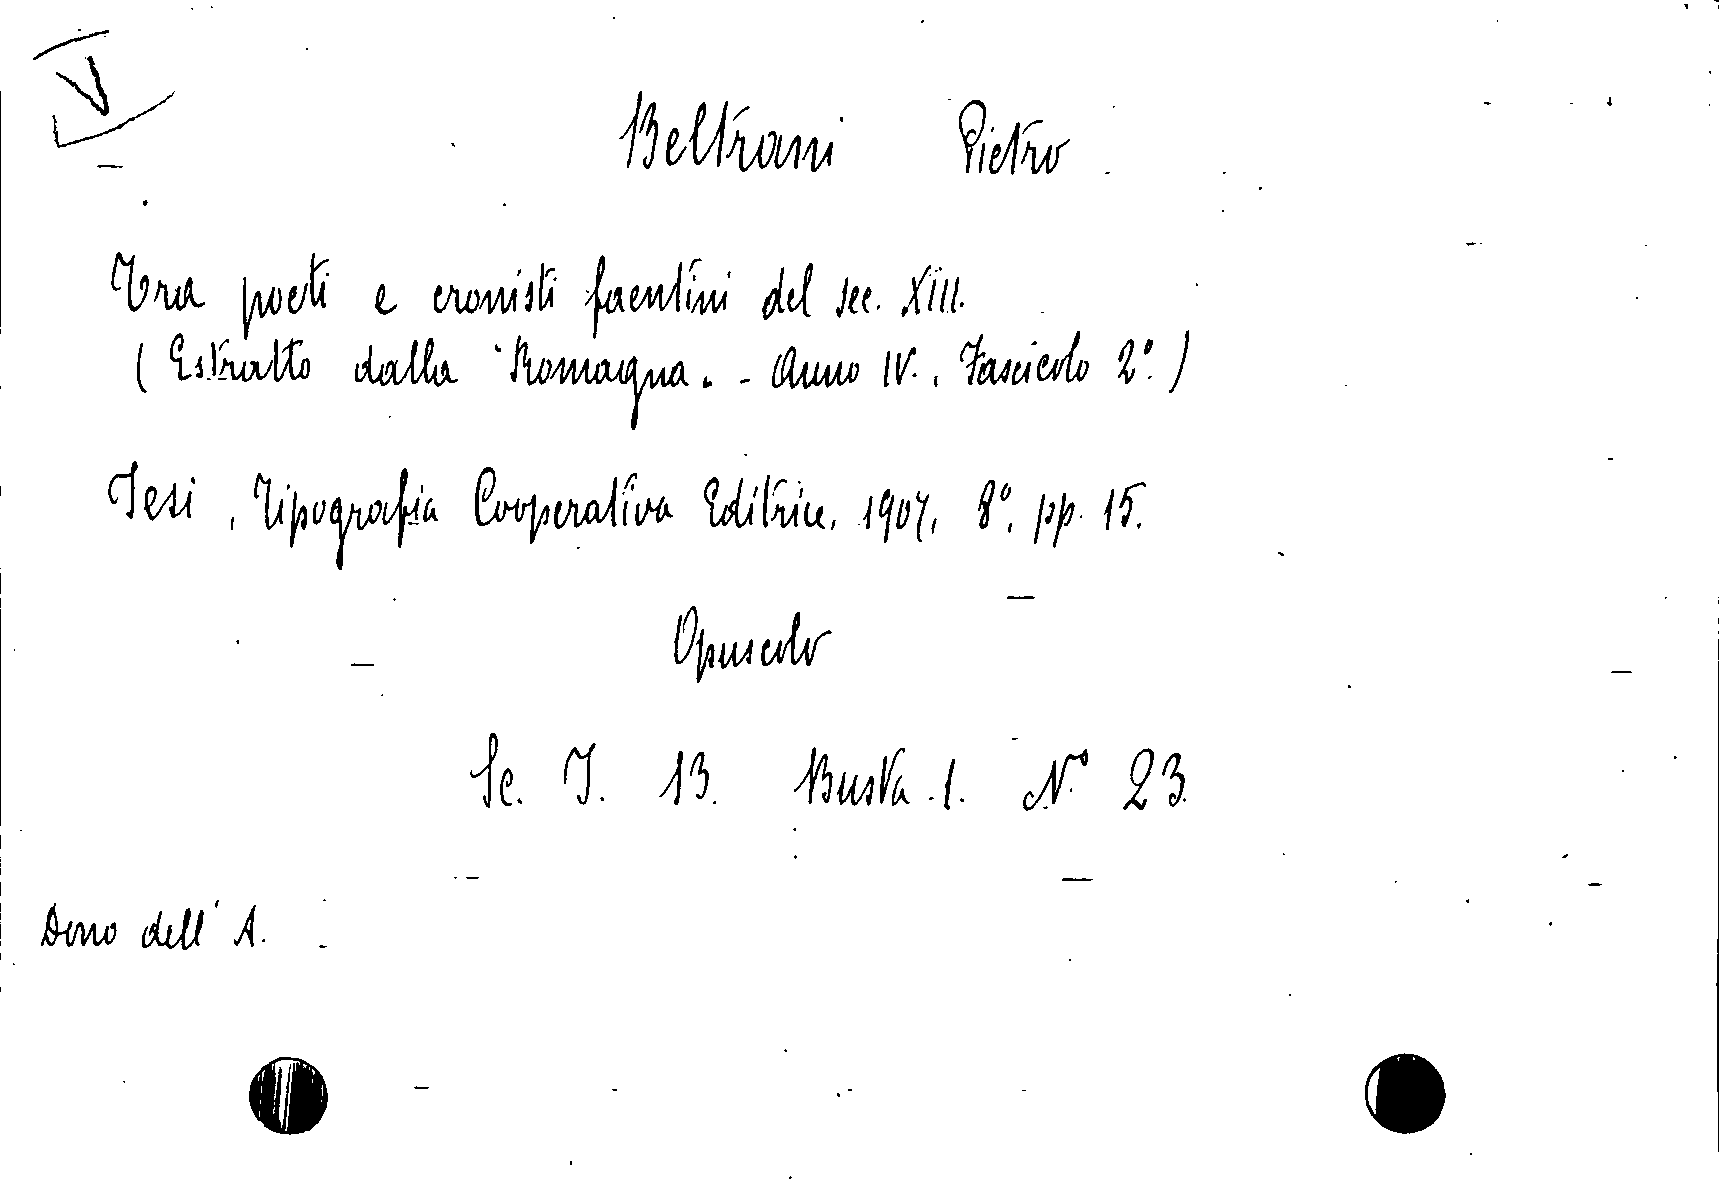 V
Beltrani Pietro
Tra poeti e cronisti faentini del sec. XIII.
(Estratto dalla "Romagna. - Anno IV. , Fascicolo 2º.)
Jesi , Tipografia Cooperativa Editrice, 1907, 8º, pp. 15.
Opuscolo
Sc. I. 13. Busta 1. Nº 23.
Dono dell' A.